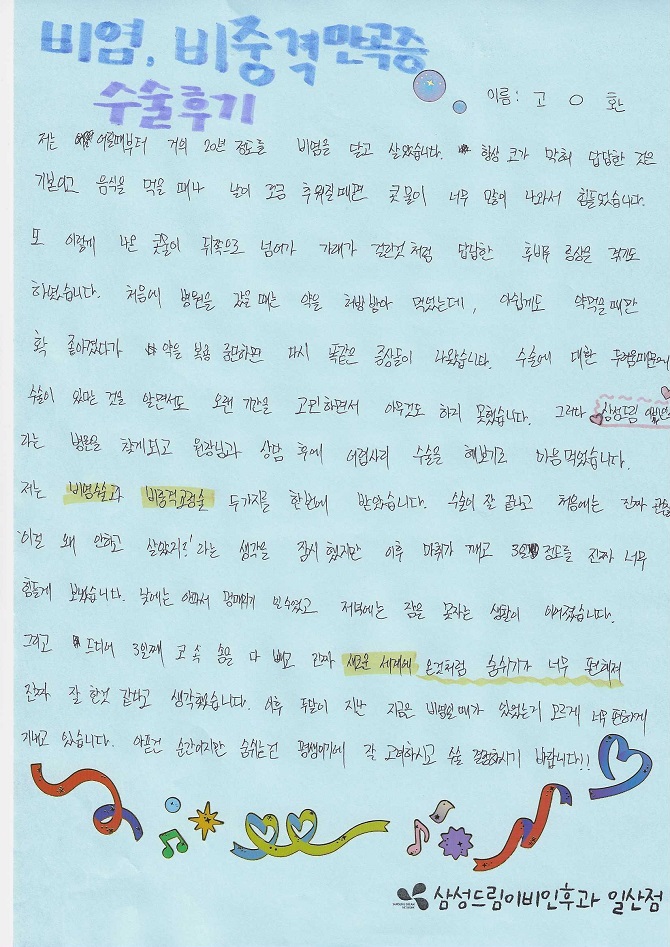 비염, 비중격만곡증
수술후기
이름: 고 ○ 환
저는 어릴때부터 거의 20년 정도를 비염을 달고 살았습니다. 항상 코가 막혀 답답한 것은
기본이고 음식을 먹을 때나 날이 조금 추워질때면 콧물이 너무 많이 나와서 힘들었습니다.
또 이렇게 나온 콧물이 뒤쪽으로 넘어가 가래가 걸린것처럼 답답한 후비루 증상을 겪기도
하였습니다. 처음에 병원을 갔을 때는 약을 처방받아 먹었는데, 아쉽게도 약먹을때만
확 좋아졌다가 약을 복용 중단하면 다시 똑같은 증상들이 나왔습니다. 수술에 대한 두려움때문에
수술이 있다는 것을 알면서도 오랜 기간을 고민하면서 아무것도 하지 못했습니다. 그러다 삼성드림
라는 병원을 찾게되고 원장님과 상담 후에 어렵사리 수술을 해보기로 마음먹었습니다.
저는 비염수술과 비중격교정술 두가지를 한번에 받았습니다. 수술이 잘 끝나고 처음에는 진짜
'이걸 왜 안하고 살았지?!'라는 생각을 잠시 했지만 이후 마취가 깨고 3일 정도를 진짜 너무
힘들게 보냈습니다. 낮에는 아파서 밥먹기 일수였고 저녁에는 잠을 못자는 생활이 이어졌습니다.
그리고 드디어 3일째 코 속 솜을 다 빼고 진짜 새로운 세계에 온것처럼 숨쉬기가 너무 편해져
진짜 잘 한것 같다고 생각했습니다. 이후 두달이 지난 지금은 비염일때가 있었는지 모르게 너무 편하게
지내고 있습니다. 아픈건 순간이지만 숨쉬는건 평생이기에 잘 고려하시고 수술 결정하시기 바랍니다!!
삼성드림이비인후과 일산점